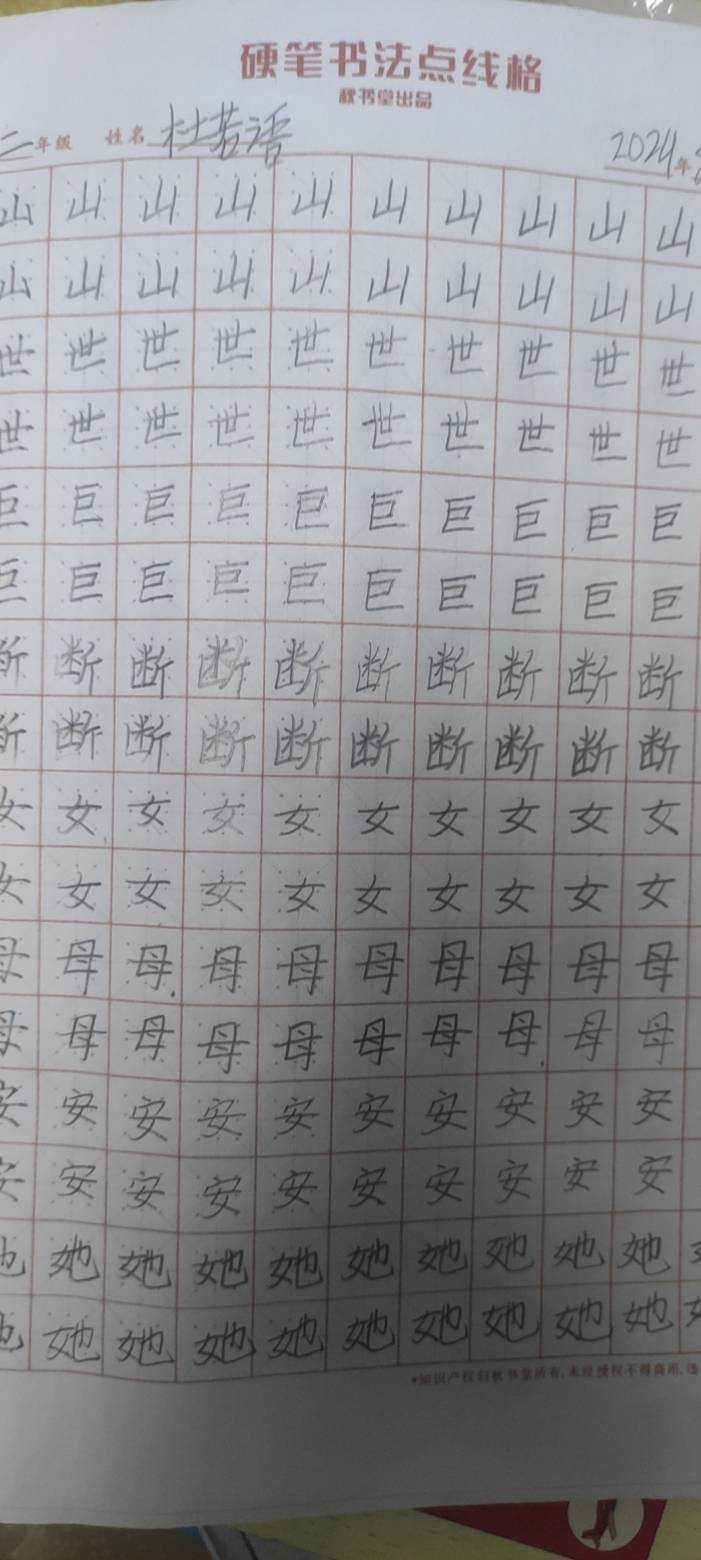 硬笔书法点线格
秋书堂出品
二年级 姓名 杜若语 2024年
山山山山山山山山山山
山山山山山山山山山山
世世世世世世世世世世
世世世世世世世世世世
巨巨巨巨巨巨巨巨巨巨
巨巨巨巨巨巨巨巨巨巨
断断断断断断断断断断
断断断断断断断断断断
女女女女女女女女女女
女女女女女女女女女女
母母母母母母母母母母
母母母母母母母母母母
安安安安安安安安安安
安安安安安安安安安安
她她她她她她她她她她
她她她她她她她她她她
*知识产权归秋书堂所有,未经授权不得商用,违